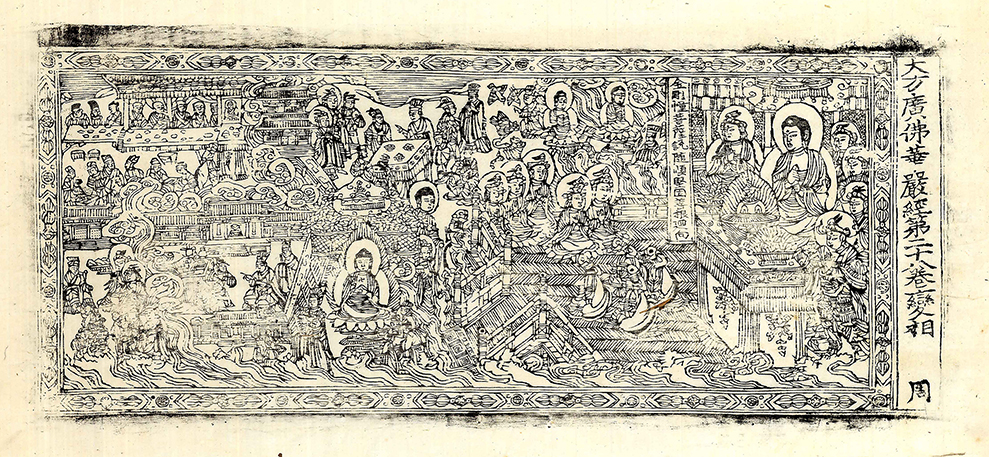 大方廣佛華嚴經第二十八卷變相
周
金剛幢菩薩說隨順堅固善根迴向